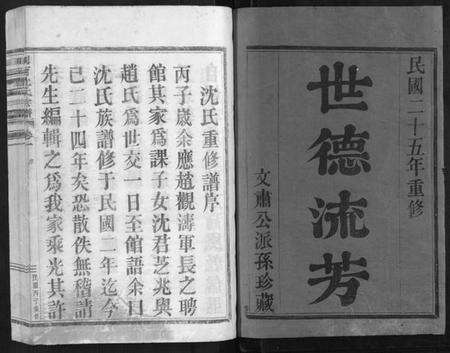 民國二十五年重修
世德流芳
文肅公派孫珍藏
沈氏重修譜序
丙子歲余應趙觀濤軍長之聘
館其家爲課子女沈君芝兆與
趙氏爲世交一日至館語余曰
沈氏族譜修于民國二年迄今
已二十四年矣恐散佚無稽請
先生編輯之爲我家乘光其許